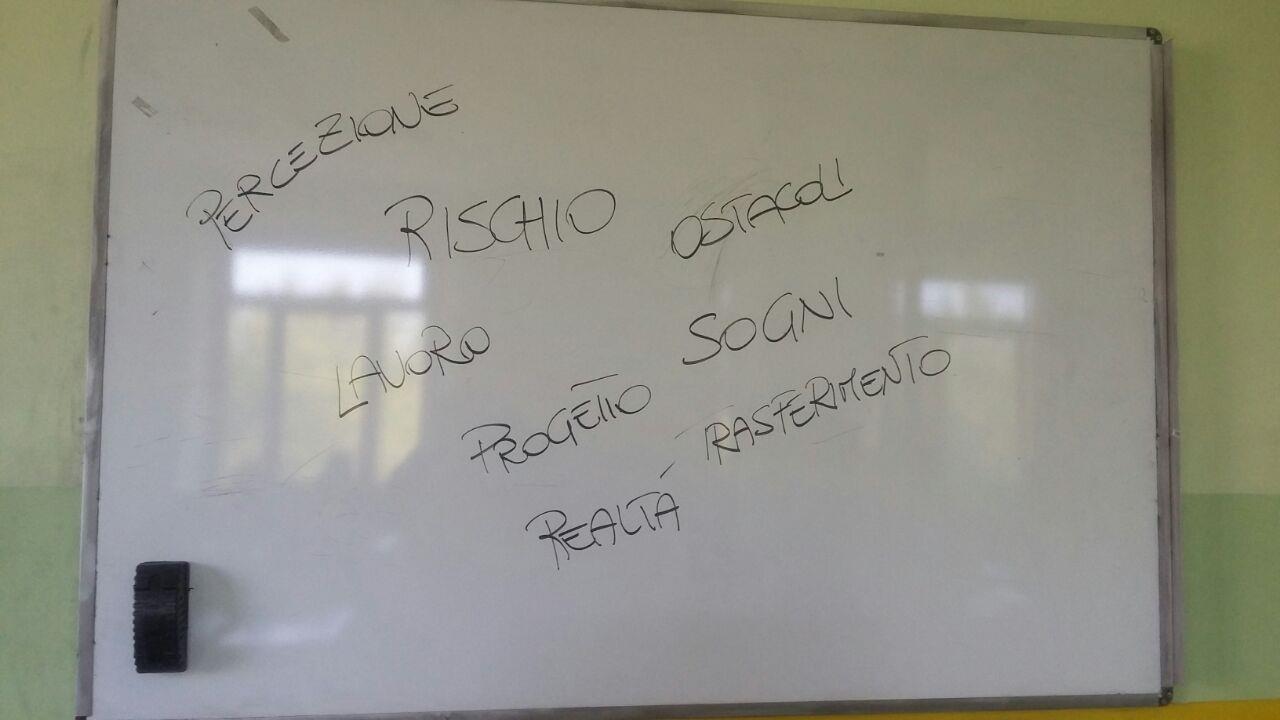 PERCEZIONE
RISCHIO
OSTACOLI
SOGNI
LAVORO
PROGETTO
TRASFERIMENTO
REALTÁ